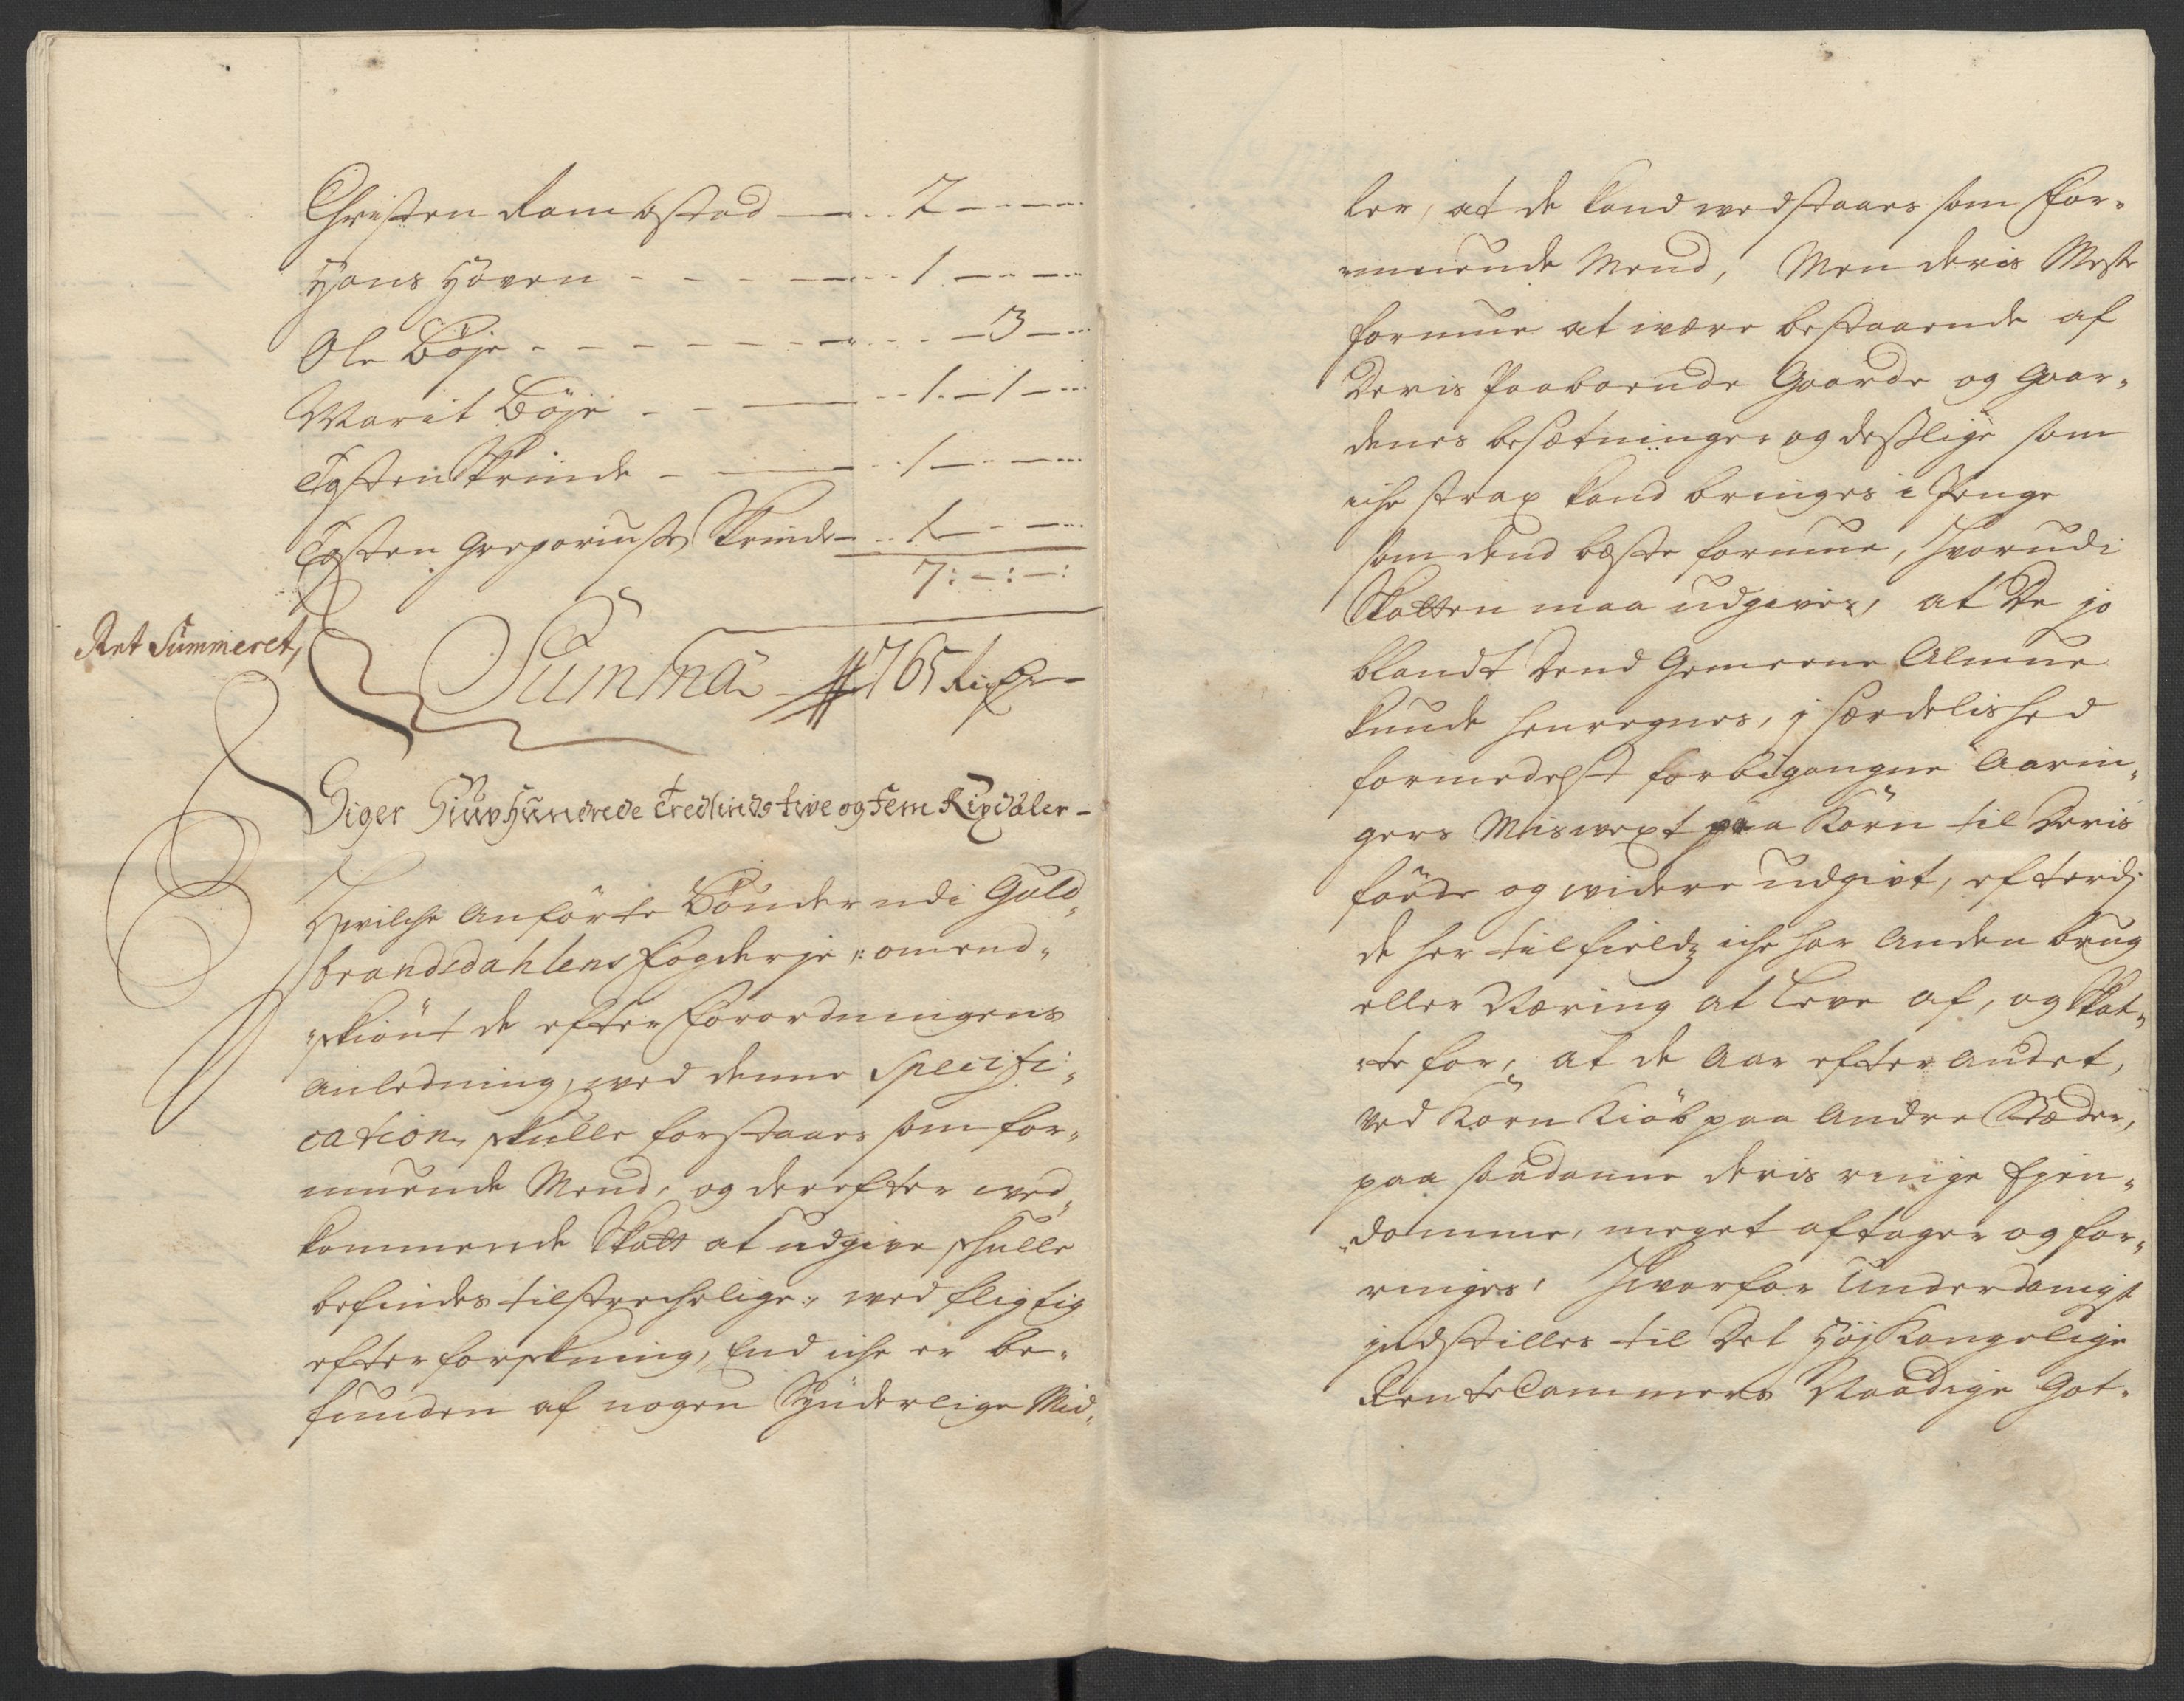 Christen Rambstad — 2 — —
Hans Hoven — 1 — —
Ole Böje — — 3 —
Marit Böje — 1 — 1 —
Tosten Skrinde — 1 — —
Tosten Gregoriuss: Skrinde — 1 — —
7: — : — :
Ret Summeret,
Summa 765 Rixdr —
Siger Siuvhundrede Tredsinds tive og fem Rixdaler —
Hvilche Anförte Bönder udi Guld„
brandsdahlens Fogderje /: omend„
„skiönt de efter Forordningens
anledning, ved denne Specifi„
cation skulle forstaaes som for„
muende Mend, og derefter ved„
kommende Skatt at udgive skulle
befindes tilstrechelige:/ ved fligtig
efterforskning, End iche er be„
funden af nogen Synderlige Mid„
ler, at de kand vedstaaes som For„
muende Mend, Men deris Meste
formue at være bestaaende af
Deris Paaboende Gaarde og Gaar„
denes besætninger og desslige som
iche strax kand bringes i Penge
som dend beste formue, hvorudi
Skatten maa udgives, at De jo
blandt Dend Gemeene Almue
kunde henregnes, j særdelished
formedelst forbigangne Aarin„
gers Misvext paa Korn til Deris
föede og videre udgivt, efterdj
de her til fields iche har Anden brug
eller Næring at leve af, og Skat„
„te for, at de Aar efter andet,
ved Korn Kiöb paa Andre Stæder,
paa saadanne deris ringe Ejen„
„domme, meget aftager og for„
ringes, Hvorfor Underdanigst
jndstilles til Det Höj Kongelige
RenteCammers Naadige Got„